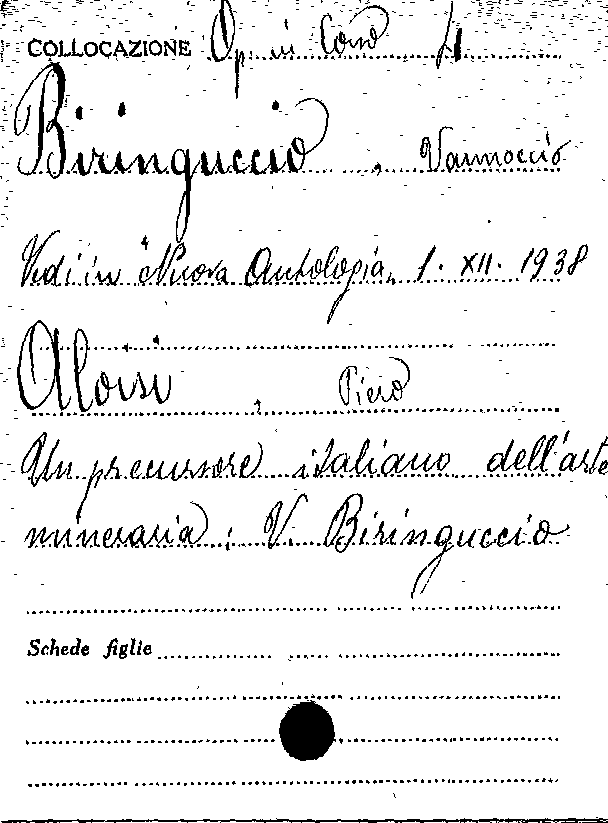 COLLOCAZIONE Op. in Corso 4
Biringuccio, Vannoccio
Vedi in "Nuova Antologia, 1. XII. 1938
Aloisi, Piero
Un precursore italiano dell'arte
mineraria: V. Biringuccio
Schede figlie